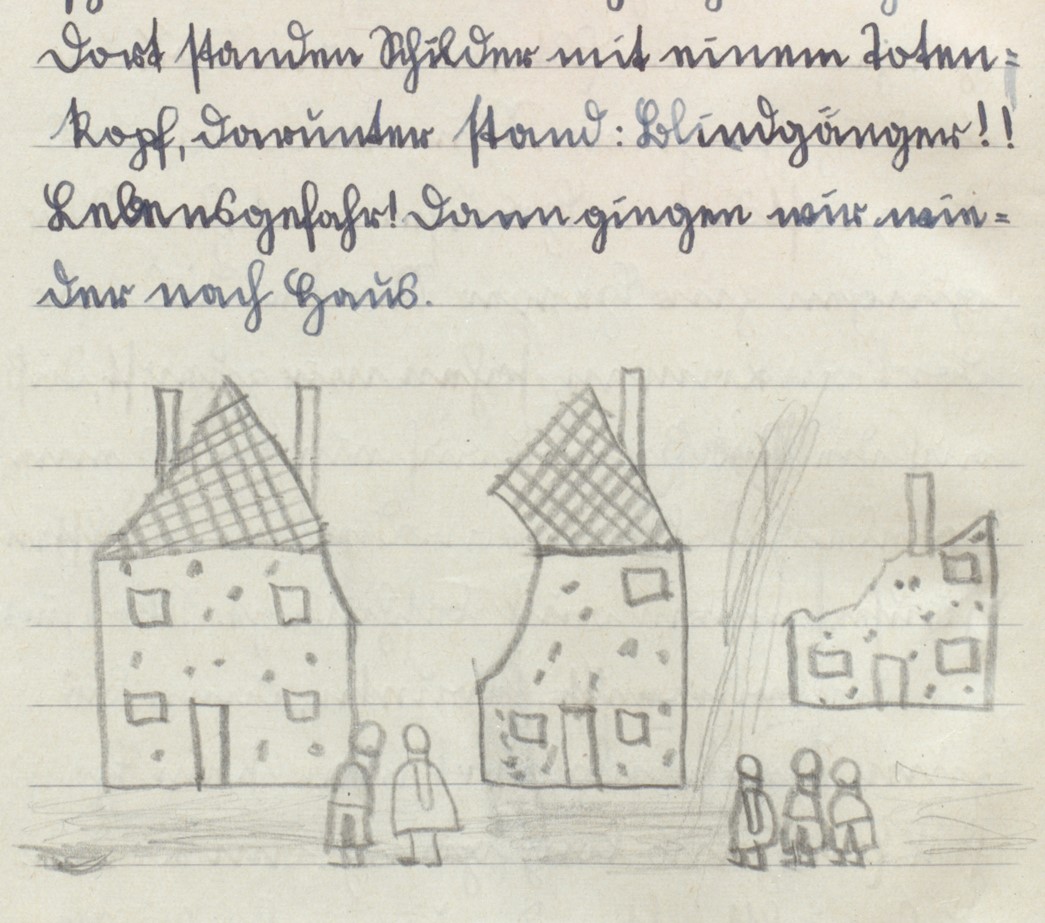 Dort standen Schilder mit einem Toten=
kopf, darunter stand: Blindgänger!!
Lebensgefahr! Dann gingen wir wie=
der nach Haus.